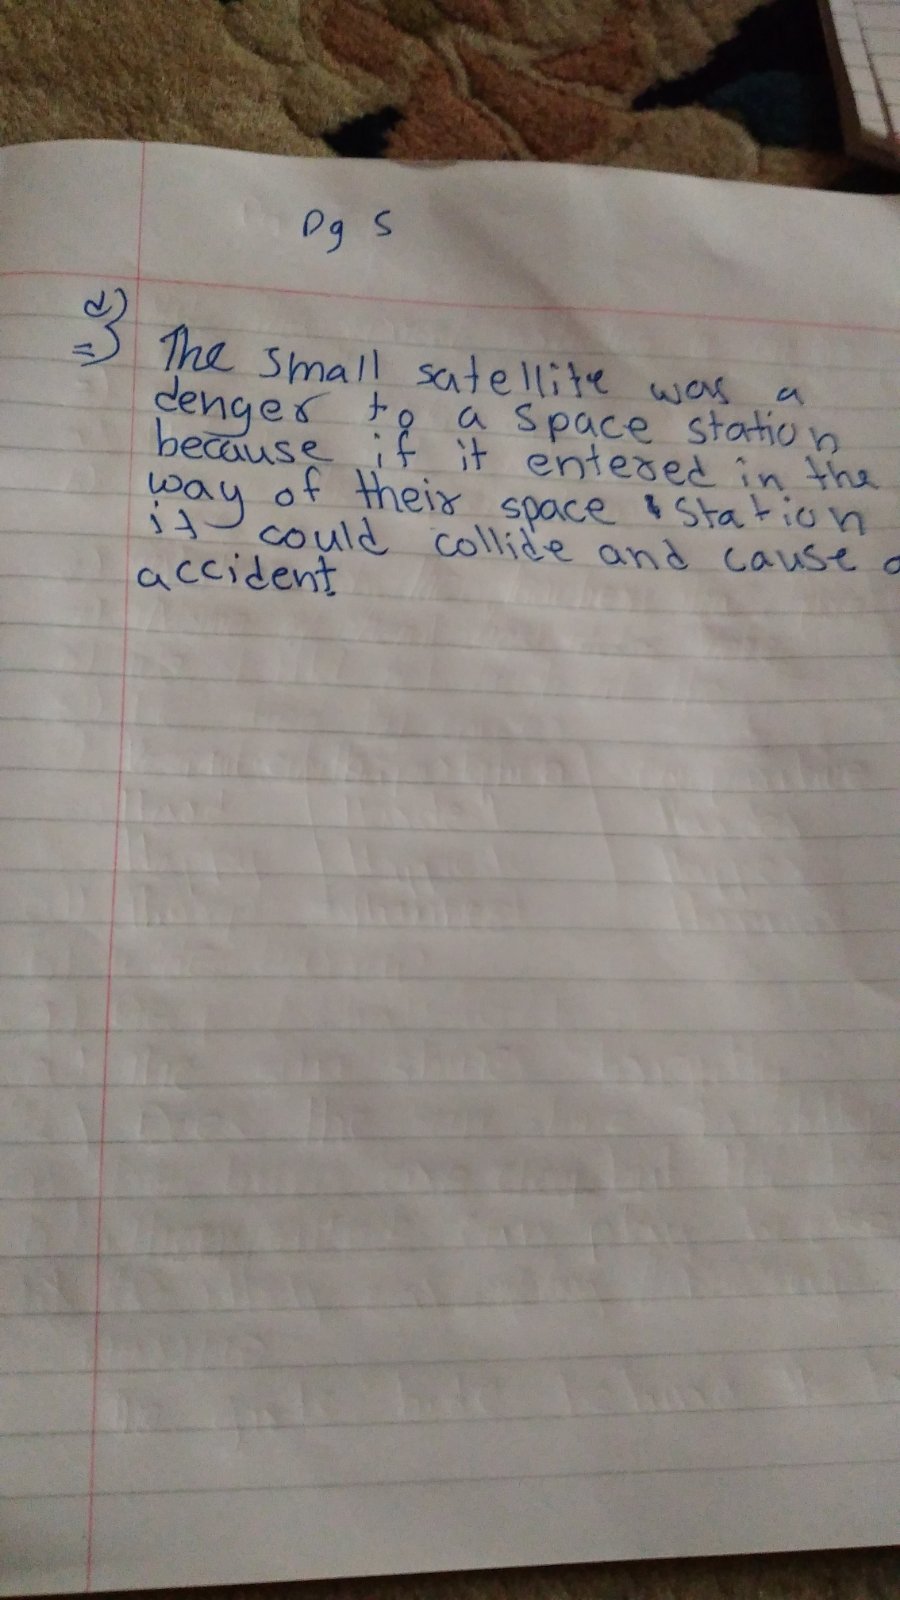 Pg 5
d)
=> The small satellite was a
denger to a space station
because if it entered in the
way of their space station
it could collide and cause a
accident.